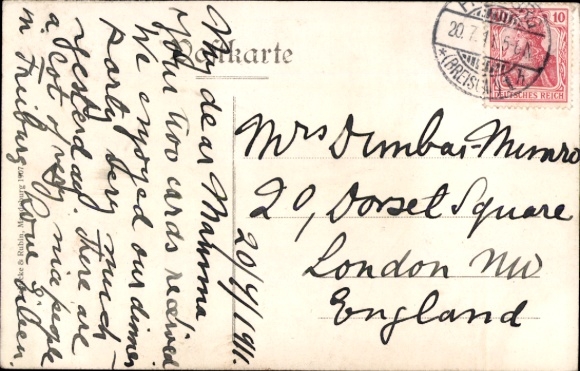 Postkarte
20.7.1
(BREISGAU)
10
DEUTSCHES REICH
My dear Mamma
your two cards received
We enjoyed our dinner
party very much
yesterday. There are
a lot of very nice people
in Freiburg
Love
20/7/1911.
Mrs Dunbar-Munro
20, Dorset Square
London NW
England
& Rubin, Magdeburg 1907